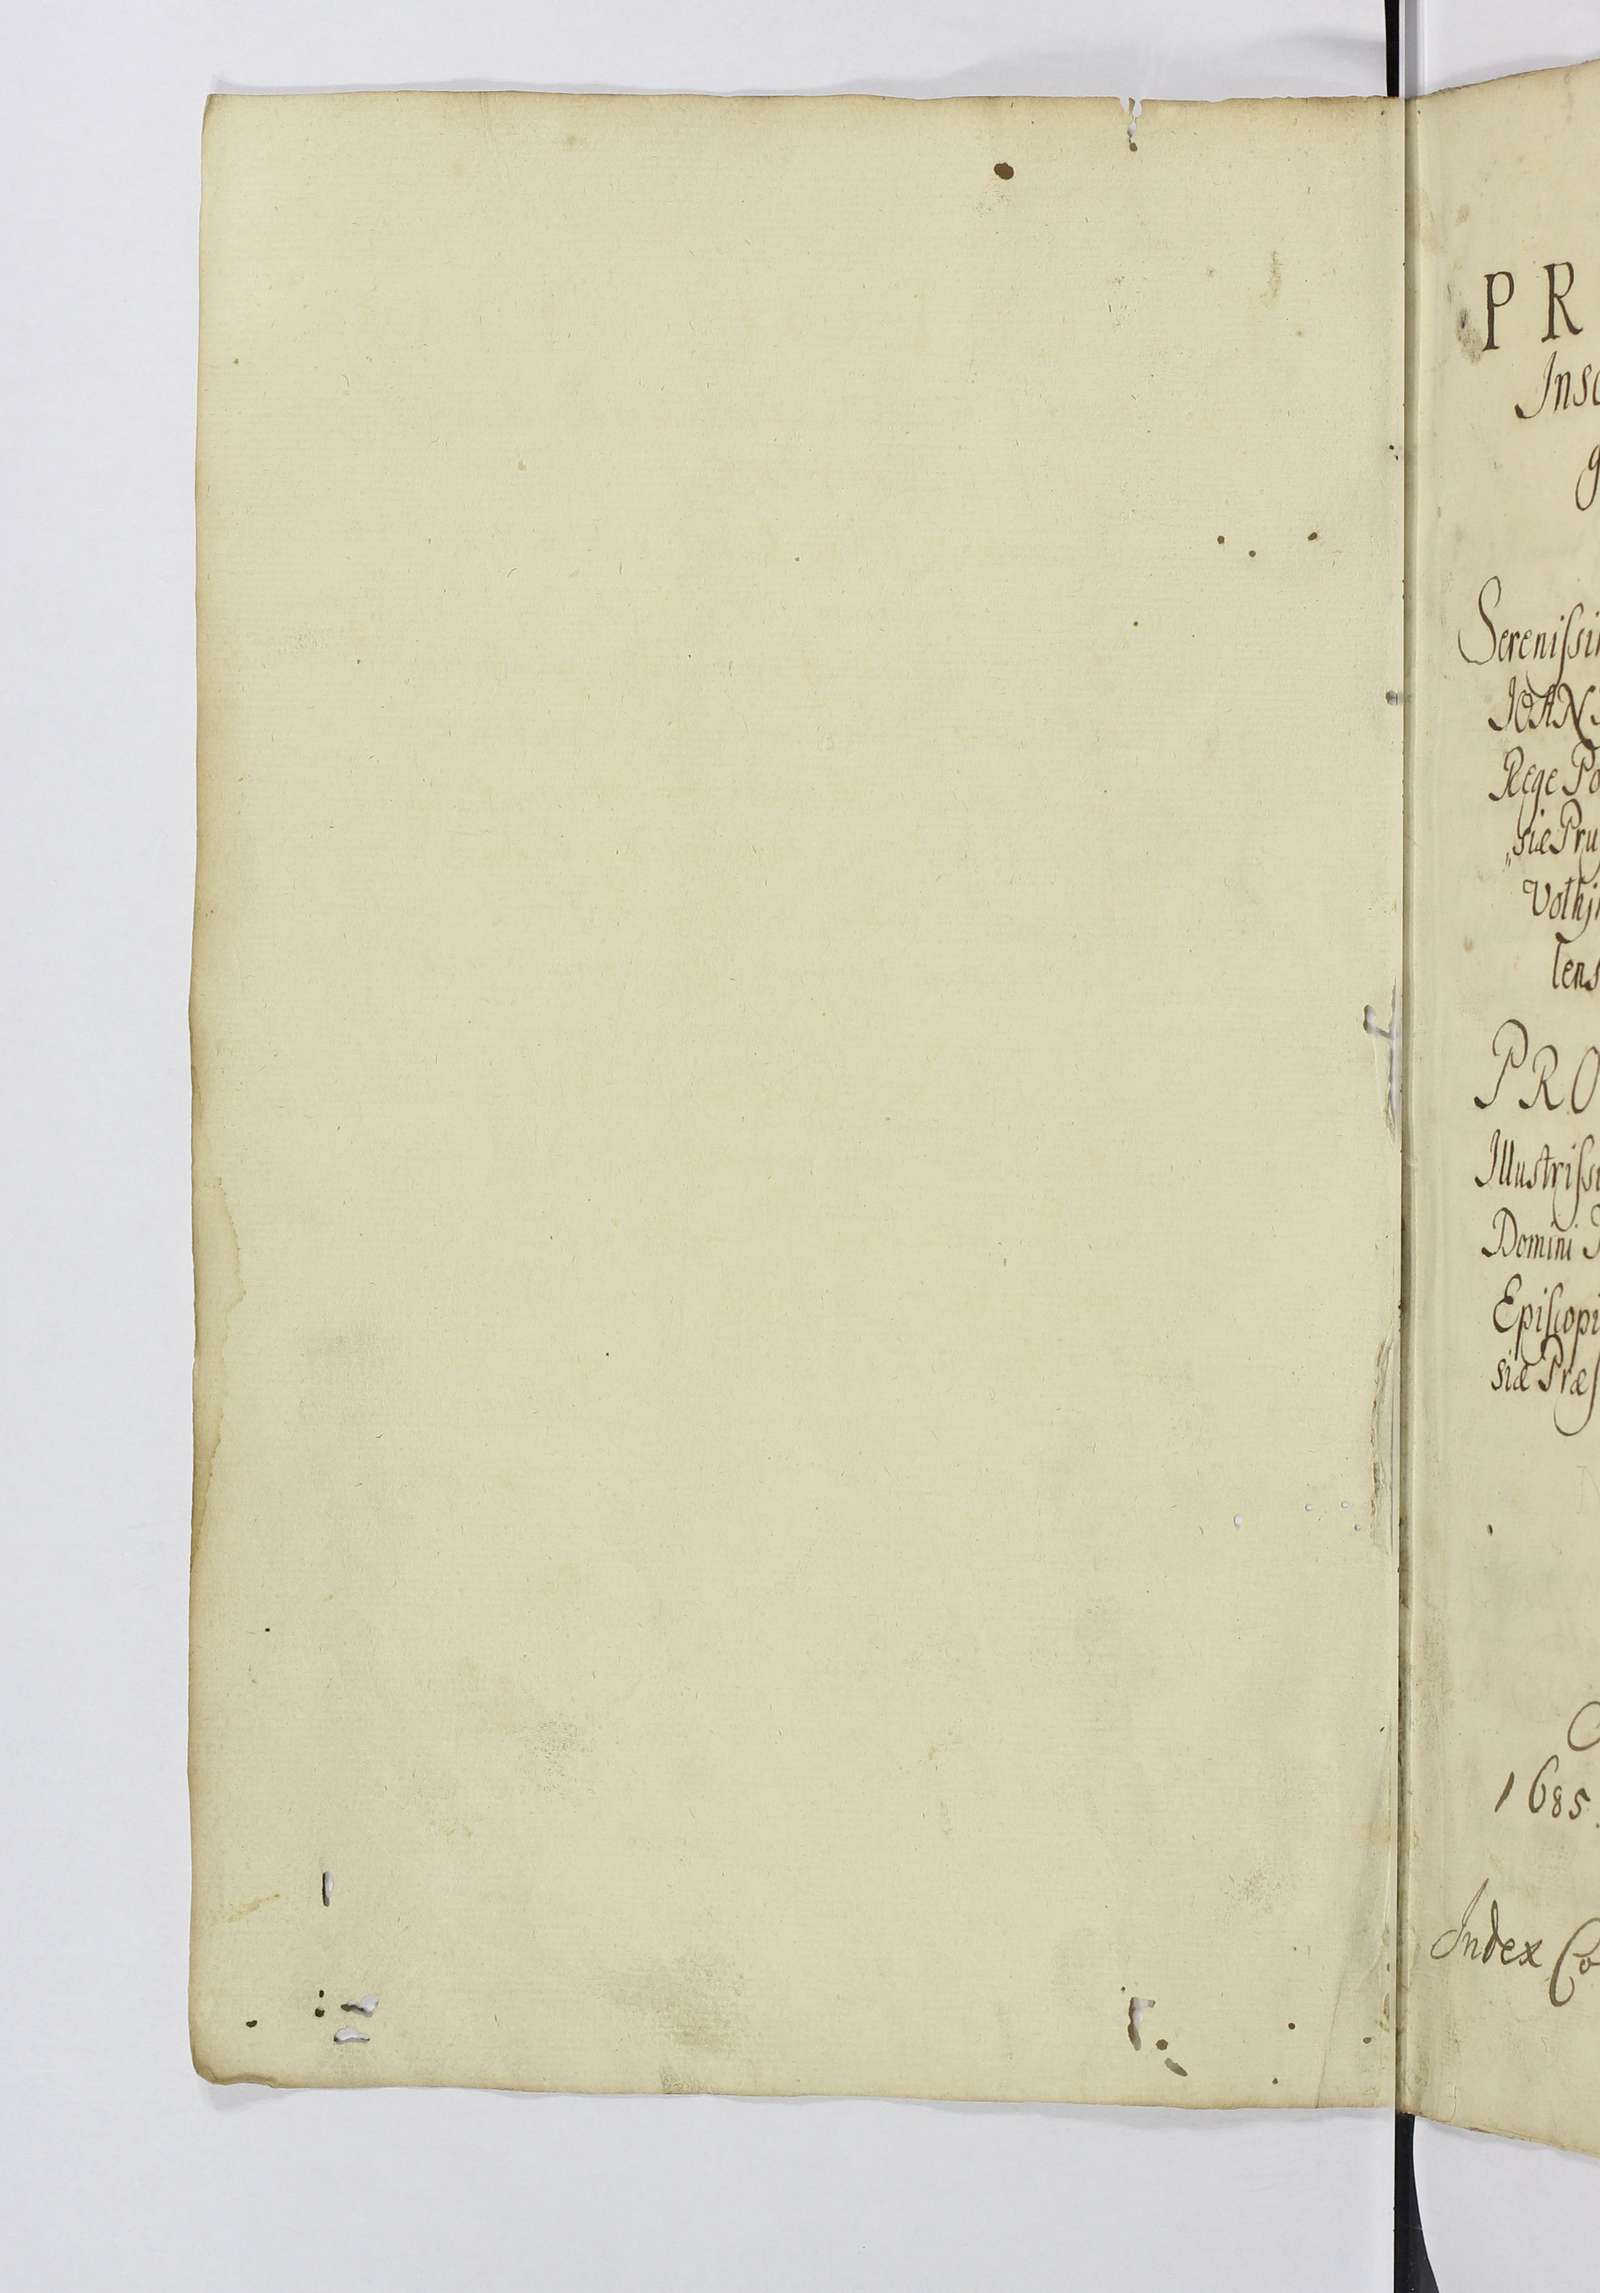 PR
Insc
g
Serenissi
IOAN
Rege Po
„siæ Pru
Volhi
lens
PRO
Illustrissi
Domini
Episcopi
siæ Præs
1685
Index Co